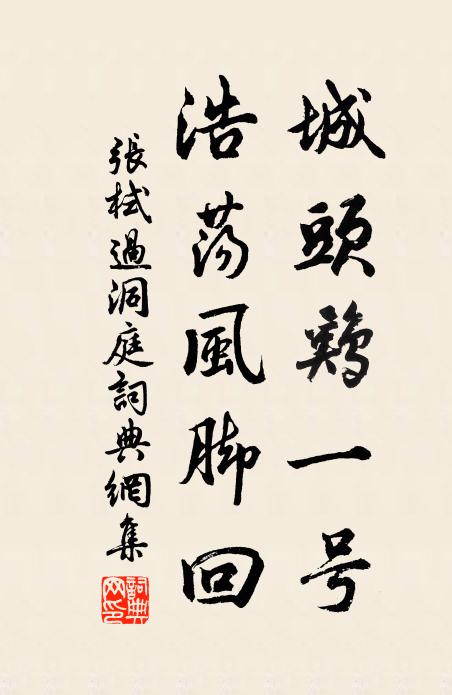 城頭鷄一号
浩荡風脚回
張栻過洞庭詞典網集
詞典網印